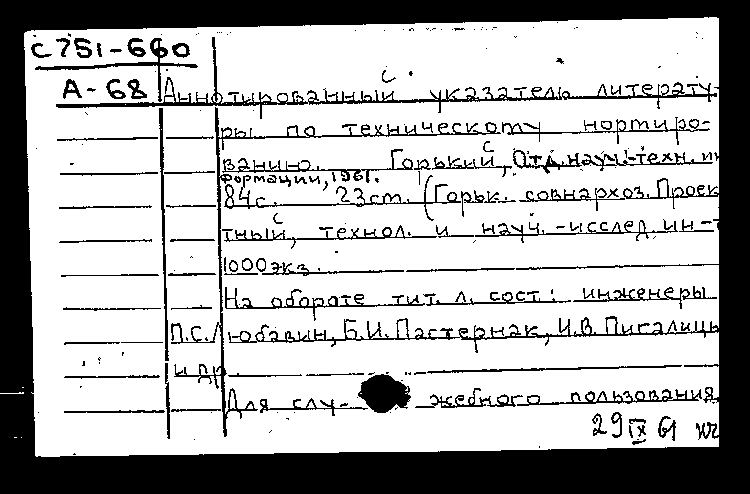 С751-660
А-68 Аннотированный указатель литерату-
ры по техническому нормиро-
ванию. Горький, Отд. науч.-техн. ин
формации, 1961.
84 с. 23 см. (Горьк. совнархоз. Проек
тный, технол. и науч.-исслед. ин-т
1000 экз.
На обороте тит. л. сост.: инженеры
П.С. Любавин, Б.И. Пастернак, И.В. Пигалицы
и др.
Для слу- жебного пользования
29 IX 61